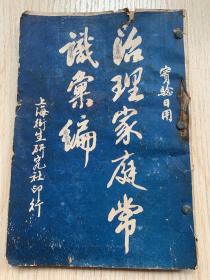 實驗日用
治理家庭常
識彙編
上海衛生研究社印行